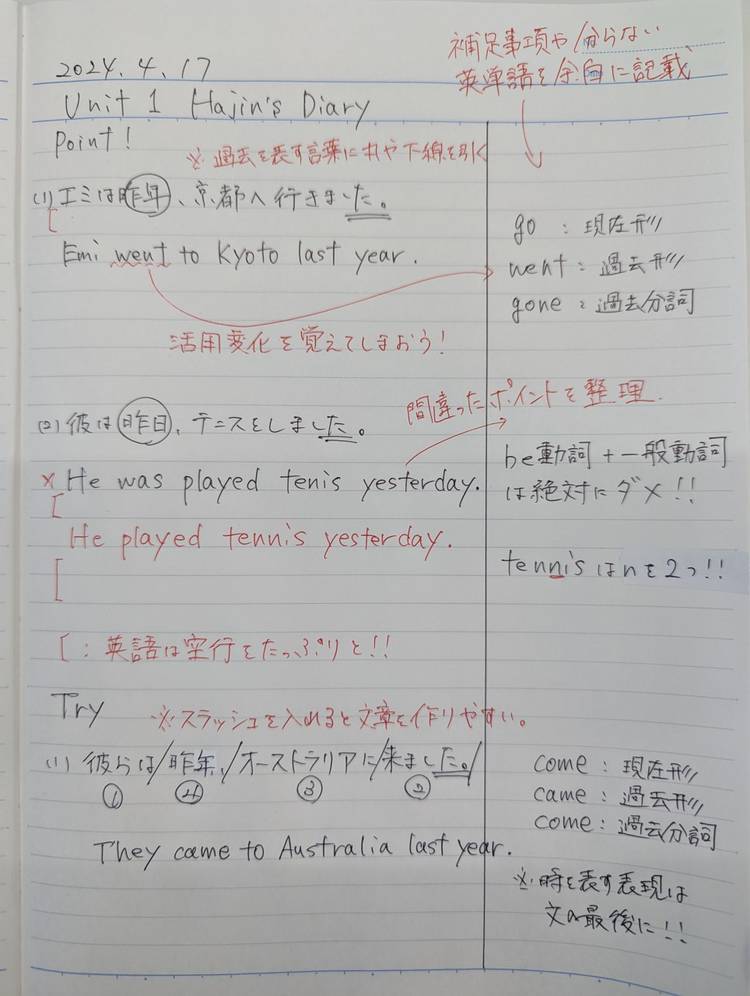 2024.4.17
補足事項や分からない
英単語を余白に記載
Unit 1 Hajin's Diary
Point!
※過去を表す言葉に丸や下線を引く
(1) エミは昨年、京都へ行きました。
Emi went to Kyoto last year.
go : 現在形
went : 過去形
gone : 過去分詞
活用変化を覚えてしまおう!
間違ったポイントを整理.
(2) 彼は昨日、テニスをしました。
× He was played tenis yesterday.
He played tennis yesterday.
be動詞 + 一般動詞
は絶対にダメ!!
tennisはnを2つ!!
[ : 英語は空行をたっぷりと!!
Try
※スラッシュを入れると文章を作りやすい。
(1) 彼らは/昨年、/オーストラリアに/来ました。/
① ④ ③ ②
They came to Australia last year.
come : 現在形
came : 過去形
come : 過去分詞
※時を表す表現は
文の最後に!!